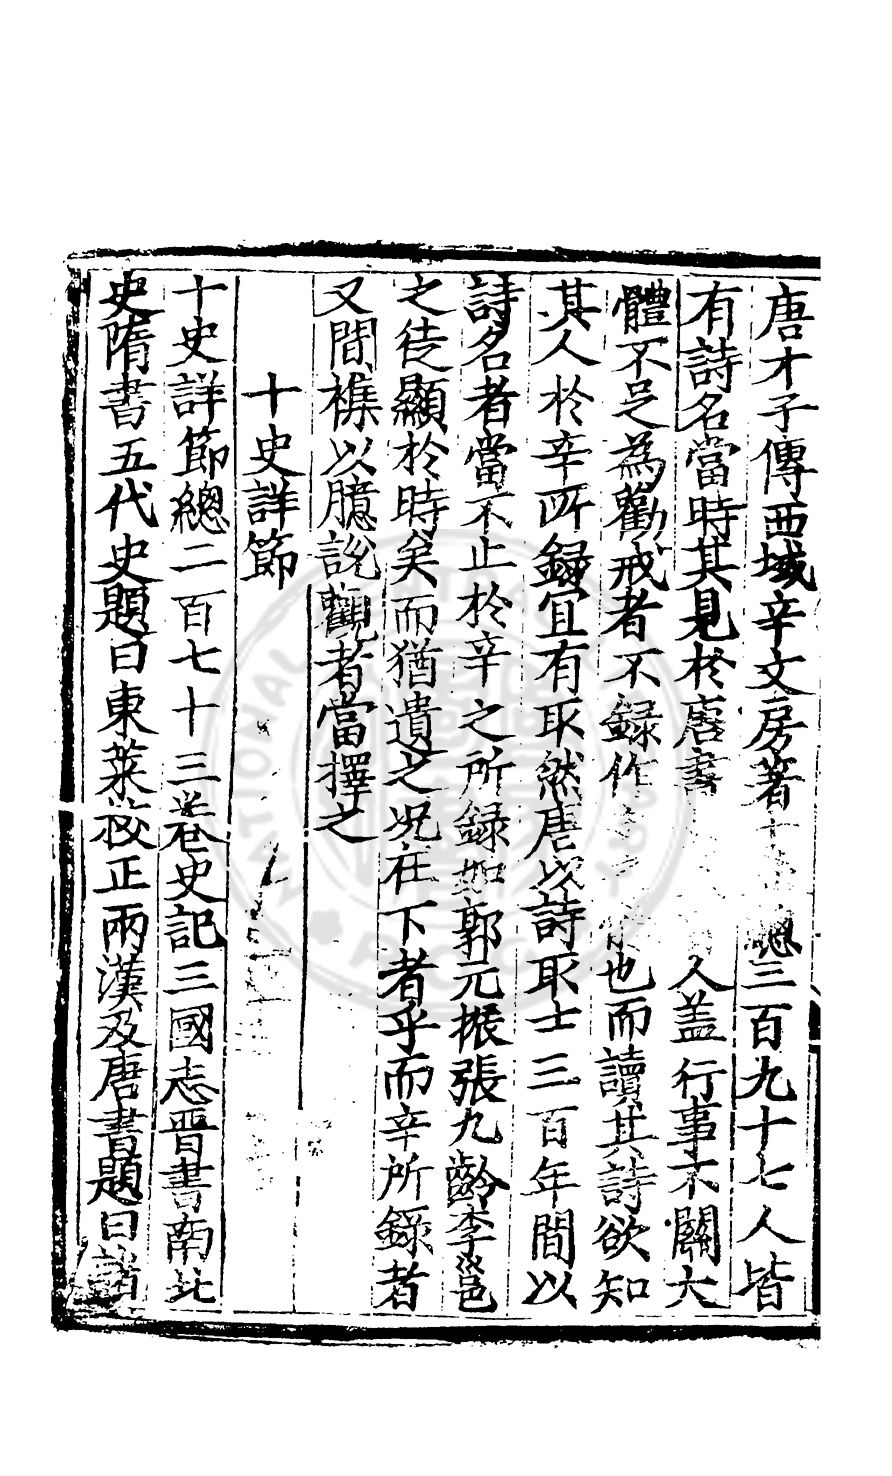 唐才子傳西域辛文房著十 總三百九十七人皆
有詩名當時其見於唐書 人盖行事不關大
體不足為勸戒者不錄作 也而讀其詩欲知
其人於辛所録宜有取然唐以詩取士三百年間以
詩名者當不止於辛之所録如郭元振張九齡李邕
之徒顯於時矣而猶遺之况在下者乎而辛所録者
又間襍以臆說觀者當擇之
十史詳節
十史詳節總二百七十三卷史記三國志晋書南北
史隋書五代史題曰東萊校正兩漢及唐書題曰諸